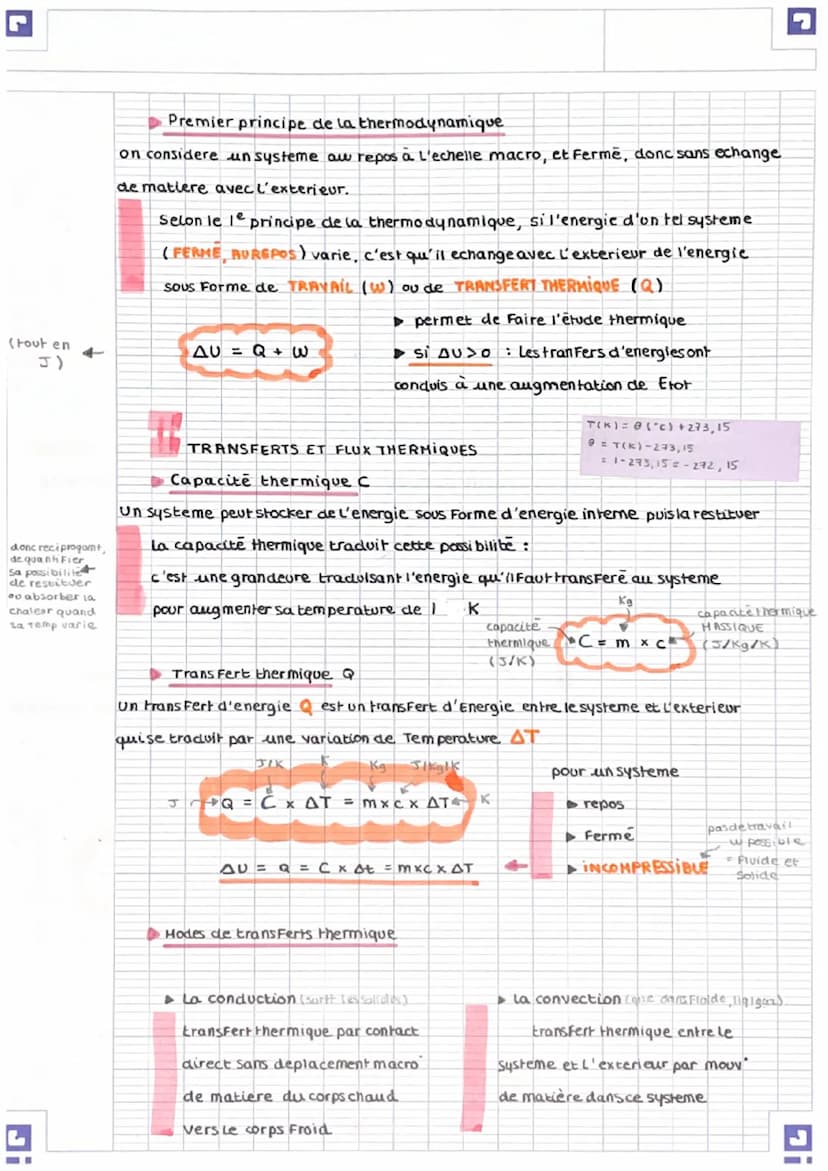 Premier principe de la thermodynamique
on considere un systeme au repos à l'echelle macro, et Fermé, donc sans echange
de matiere avec l'exterieur.
Selon le 1e principe de la thermodynamique, si l'energie d'on tel systeme
(FERMÉ, AU REPOS) varie, c'est qu'il echange avec l'exterieur de l'energie
sous Forme de TRAVAIL (W) ou de TRANSFERT THERMIQUE (Q)
(tout en
J)
ΔU = Q + W
▶ permet de Faire l'étude thermique
▶ si ΔU > 0 : Les tranfers d'energie sont
conduis à une augmentation de Etot
II
TRANSFERTS ET FLUX THERMIQUES
T(K) = θ (°C) + 273,15
θ = T(K) - 273,15
= 1 - 273,15 = - 272,15
Capacité thermique C
Un systeme peut stocker de l'energie sous Forme d'energie interne puis la restituer
La capacité thermique traduit cette possibilité :
c'est une grandeure traduisant l'energie qu'il Faut transferé au systeme
pour augmenter sa temperature de 1 K
donc reciproqamt,
de quantifier
sa possibilité
de restituer
ou absorber la
chaleur quand
sa temp varie
Kg
capacité
thermique
(J/K)
C = m x c
capacité thermique
MASSIQUE
(J/Kg/K)
Transfert thermique Q
Un transfert d'energie Q est un transfert d'Energie entre le systeme et l'exterieur
qui se traduit par une variation de Temperature ΔT
J/K K Kg J/Kg/K
J Q = C x ΔT = m x c x ΔT K
ΔU = Q = C x Δt = m x c x ΔT
pour un systeme
▶ repos
▶ Fermé
▶ INCOMPRESSIBLE
pas de travail
W possible
= Fluide et
Solide
Modes de transferts thermique
▶ La conduction (surtt les solides)
transfert thermique par contact
direct sans deplacement macro
de matiere du corps chaud
vers Le corps Froid
▶ La convection (que dans Fluide, liq/gaz)
transfert thermique entre le
systeme et l'exterieur par mouv
de matière dans ce systeme